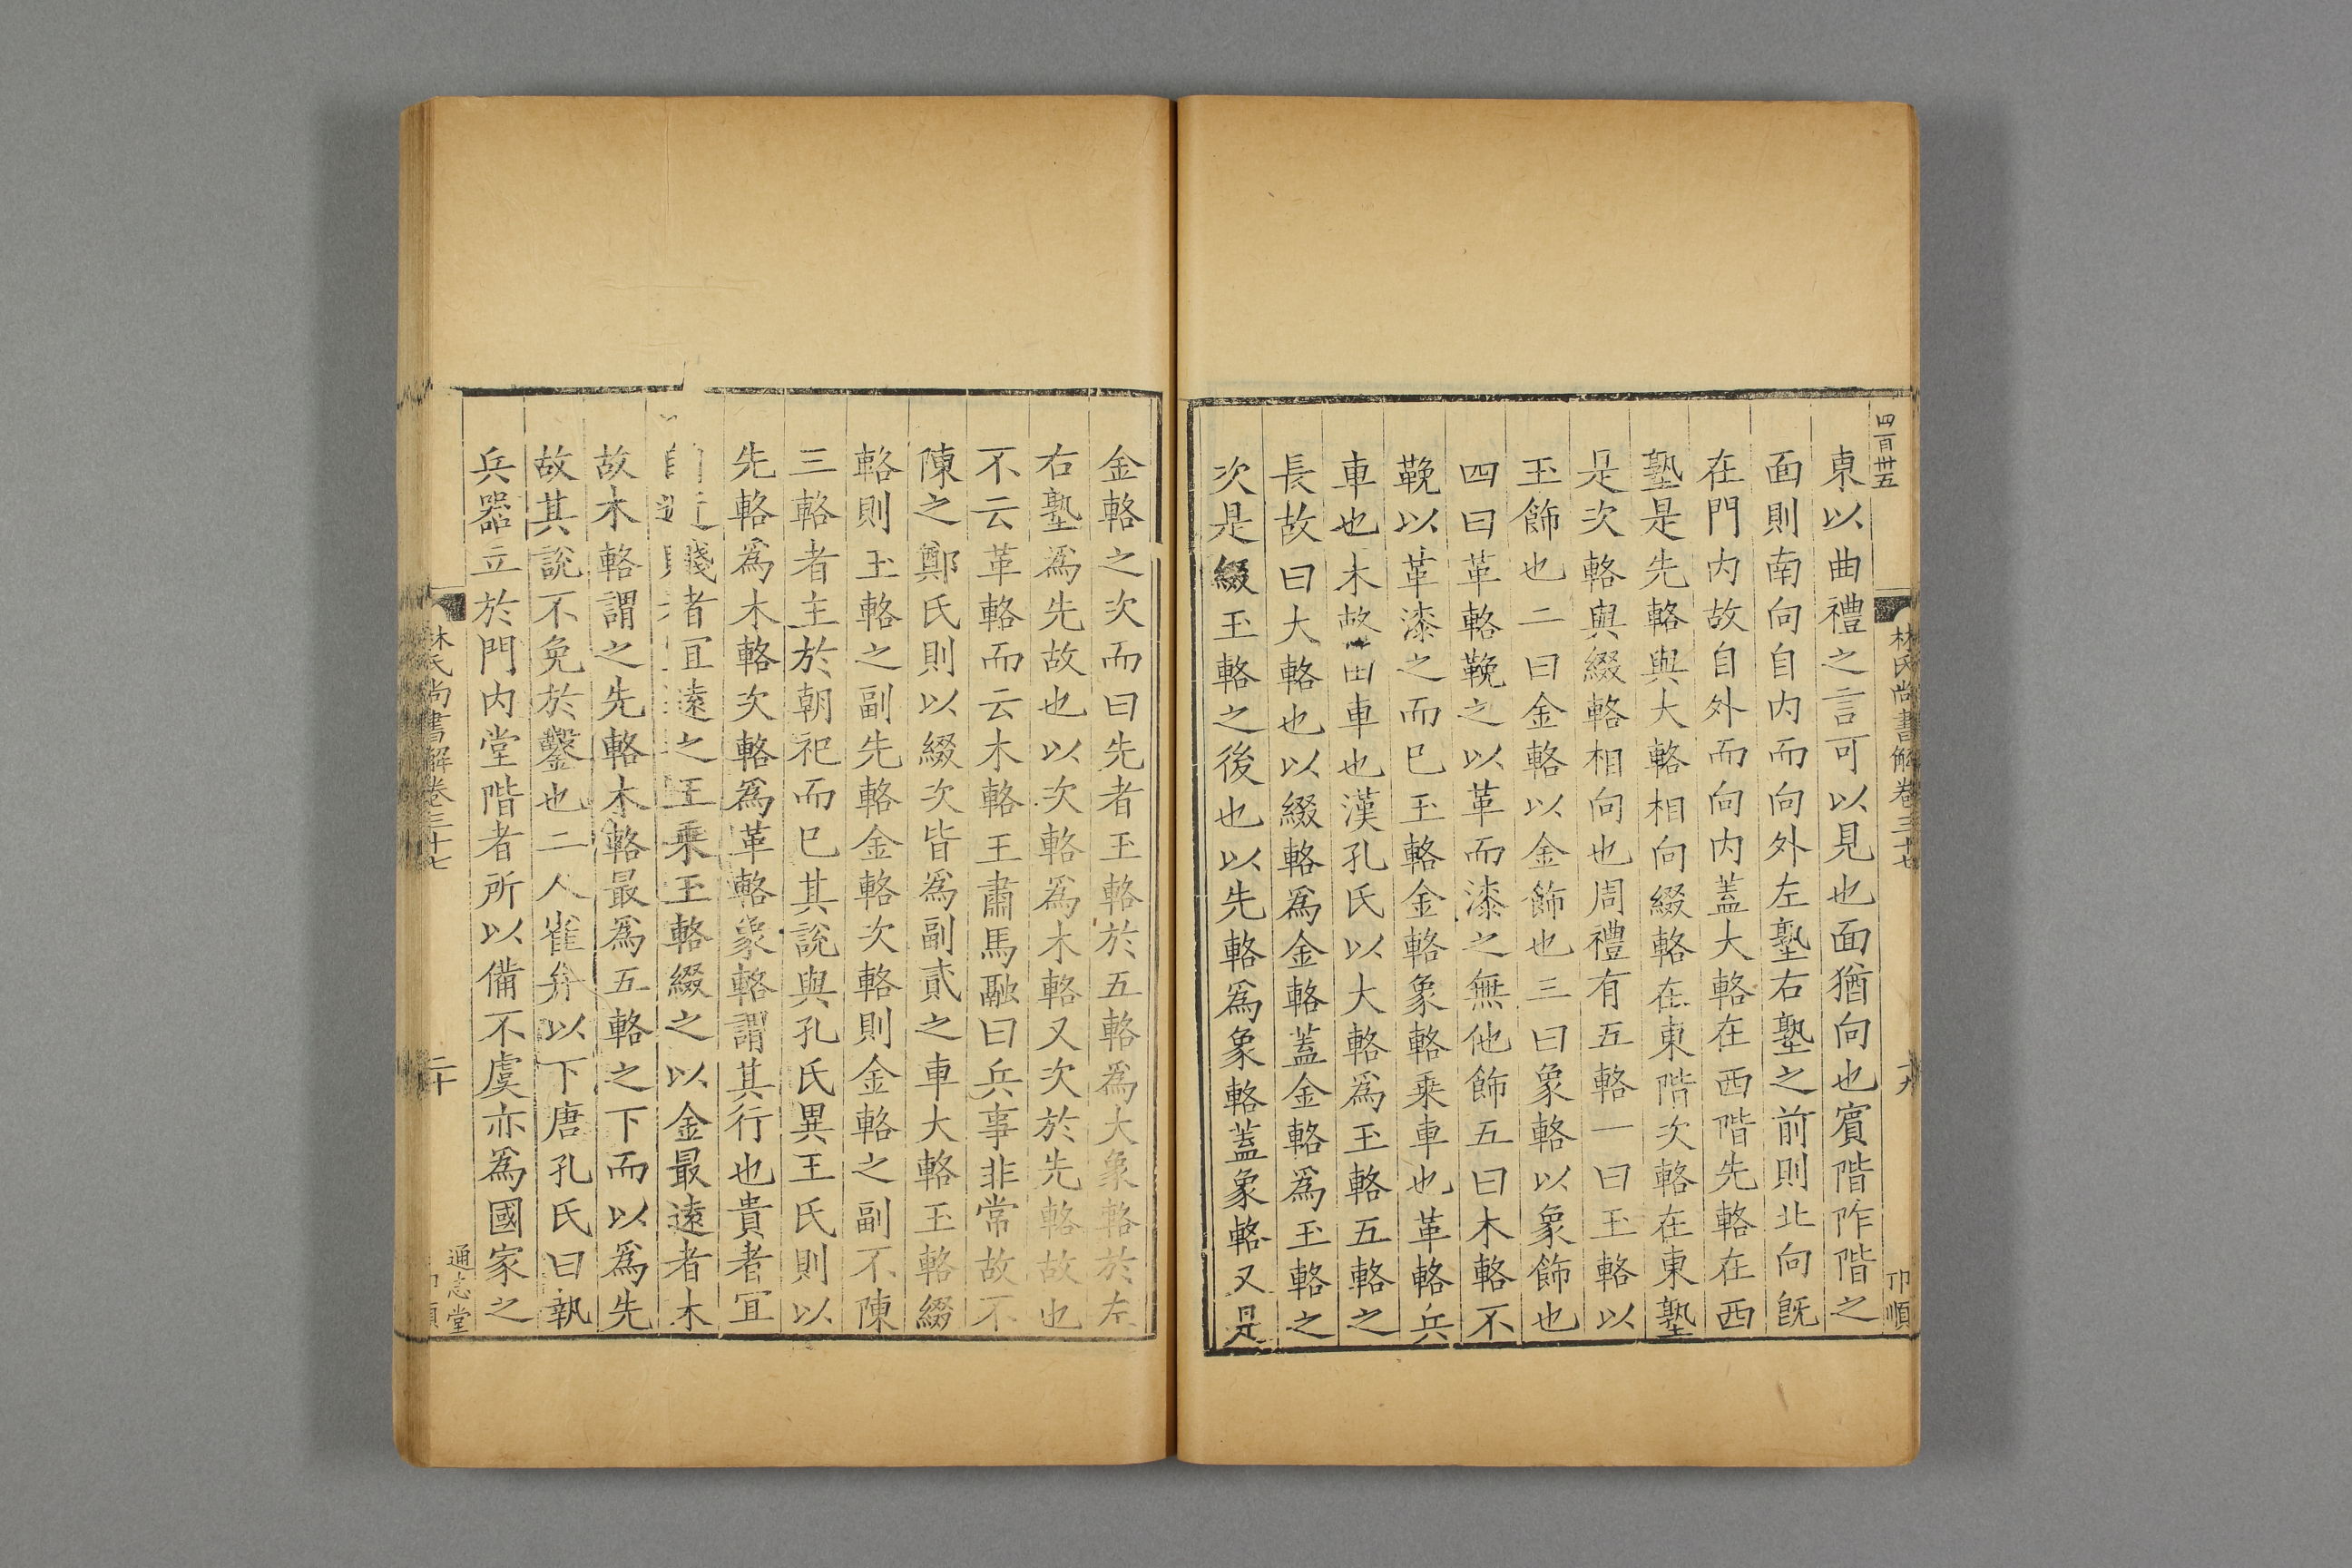 四百卅五
林氏尚書解卷三十七
十九
卭順
東以曲禮之言可以見也面猶向也賓階阼階之
面則南向自内而向外左塾右塾之前則北向旣
在門内故自外而向内蓋大輅在西階先輅在西
塾是先輅與大輅相向綴輅在東階次輅在東塾
是次輅與綴輅相向也周禮有五輅一曰玉輅以
玉飾也二曰金輅以金飾也三曰象輅以象飾也
四曰革輅鞔之以革而漆之無他飾五曰木輅不
鞔以革漆之而巳玉輅金輅象輅乘車也革輅兵
車也木輅田車也漢孔氏以大輅爲玉輅五輅之
長故曰大輅也以綴輅爲金輅蓋金輅爲玉輅之
次是綴玉輅之後也以先輅爲象輅蓋象輅又是
金輅之次而曰先者王輅於五輅爲大象輅於左
右塾爲先故也以次輅爲木輅又次於先輅故也
不云革輅而云木輅王肅馬融曰兵事非常故不
陳之鄭氏則以綴次皆爲副貳之車大輅玉輅綴
輅則玉輅之副先輅金輅次輅則金輅之副不陳
三輅者主於朝祀而巳其說與孔氏異王氏則以
先輅爲木輅次輅爲革輅象輅謂其行也貴者宜
自近賤者宜遠之王乘玉輅綴之以金最遠者木
故木輅謂之先輅木輅最爲五輅之下而以爲先
故其說不免於鑿也二人雀弁以下唐孔氏曰執
兵器立於門内堂階者所以備不虞亦爲國家之
林氏尚書解卷三十七
二十
通志堂